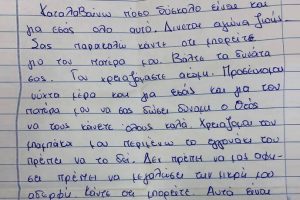 Καταλαβαίνω πόσο δύσκολο είναι και
για εσας ολο αυτό. Δίνεται αγώνα ζωής.
Σας παρακαλώ κάντε ότι μπορείτε
για τον πατέρα μου. Βάλτε τα δυνατά
σας. Τον χρειαζόμαστε ακομη. Προσευχομαι
νύχτα μέρα και για εσάς και για τον
πατέρα μου να σας δώσει δύναμη ο Θεός
να τους κάνετε όλους καλά. Χρειαζομαι τον
μπαμπακα μου περιμένω το εγγονάκι του
πρέπει να το δει. Δεν πρέπει να μας αφη-
σει πρέπει να μεγαλώσει την μικρη μου
αδερφη κάντε ότι μπορείτε. Αυτό είναι